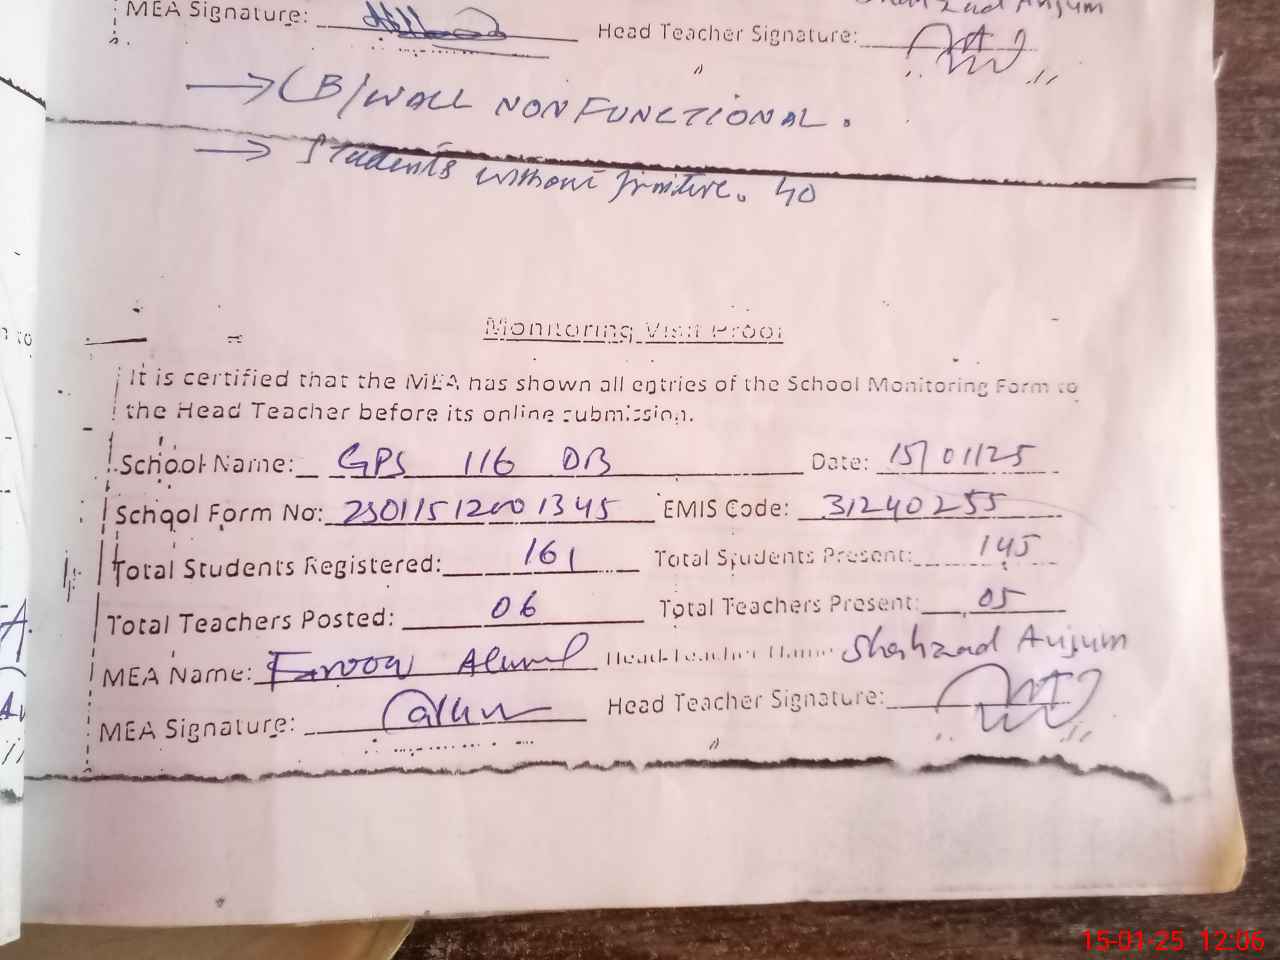 MEA Signature: Head Teacher Signature:
→ B/WALL NON FUNCTIONAL.
→ Students without frniture. 40
Monitoring Visit Proof
It is certified that the MEA has shown all entries of the School Monitoring Form to
the Head Teacher before its online submission.
School Name: GPS 116 DB Date: 15/01/25
School Form No: 25011512001345 EMIS Code: 31240255
Total Students Registered: 161 Total Students Present: 145
Total Teachers Posted: 06 Total Teachers Present: 05
MEA Name: Head Teacher Name: Shahzaad Anjum
MEA Signature: Head Teacher Signature:
15-01-25 12:06